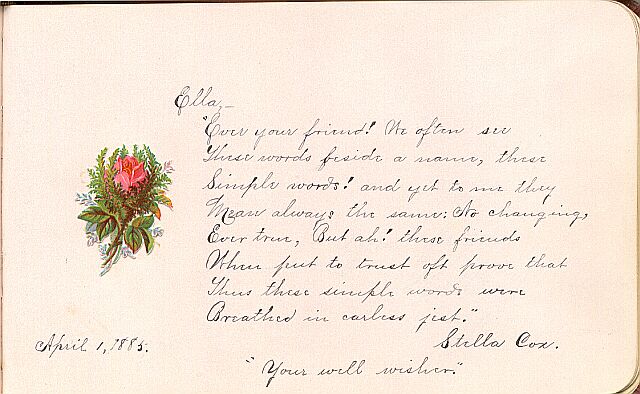 Ella,—
"Ever your friend! We often see
These words beside a name, these
Simple words! and yet to me they
Mean always the same: No changing,
Ever true, But ah! these friends
When put to trust oft prove that
Thus these simple words were
Breathed in carless jest."
Stella Cox.
April 1, 1885.
"Your well wisher."